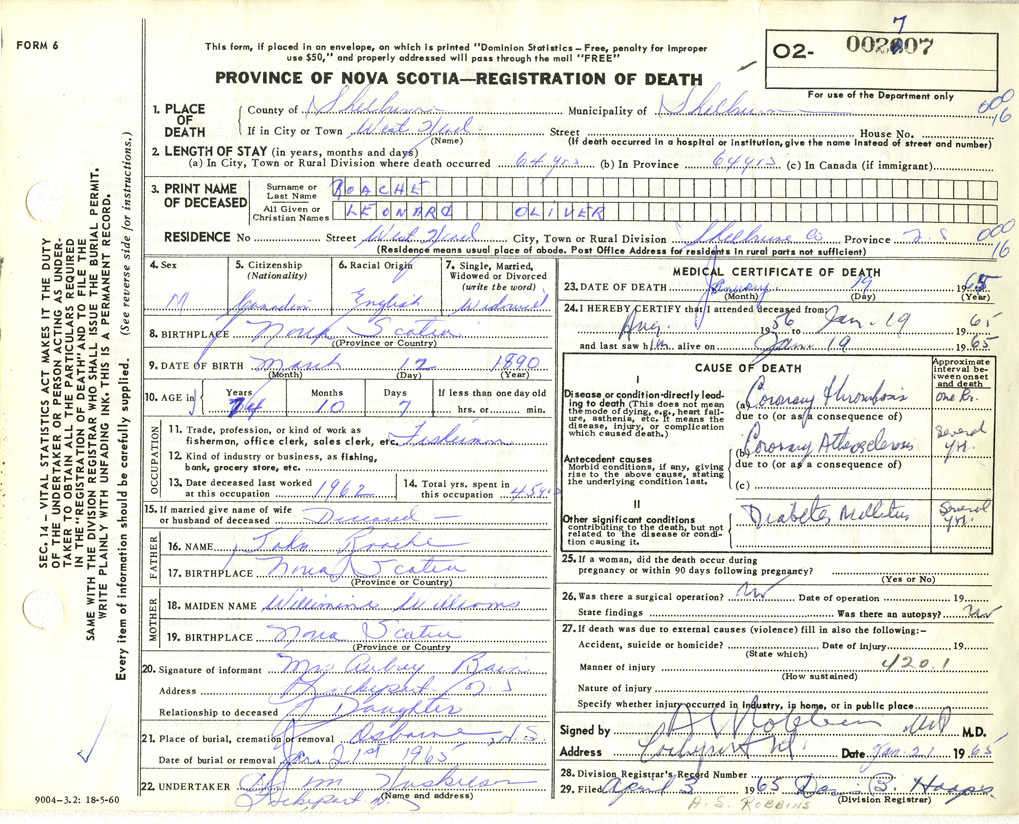 FORM 6
This form, if placed in an envelope, on which is printed "Dominion Statistics – Free, penalty for improper
use $50," and properly addressed will pass through the mail "FREE"
PROVINCE OF NOVA SCOTIA—REGISTRATION OF DEATH
O2- 002707
7
For use of the Department only
000
16
1. PLACE OF DEATH
County of Shelburne Municipality of Shelburne
If in City or Town West Head Street House No.
(Name) (If death occurred in a hospital or institution, give the name instead of street and number)
2. LENGTH OF STAY (in years, months and days)
(a) In City, Town or Rural Division where death occurred 64 yrs (b) In Province 64 yrs (c) In Canada (if immigrant)
3. PRINT NAME OF DECEASED
Surname or Last Name ROACHE
All Given or Christian Names LEONARD OLIVER
RESIDENCE No Street West Head City, Town or Rural Division Shelburne Co Province N.S
(Residence means usual place of abode. Post Office Address for residents in rural parts not sufficient)
000
16
4. Sex
M
5. Citizenship
(Nationality)
Canadian
6. Racial Origin
English
7. Single, Married,
Widowed or Divorced
(write the word)
Widowed
8. BIRTHPLACE Nova Scotia
(Province or Country)
9. DATE OF BIRTH March 12 1890
(Month) (Day) (Year)
10. AGE in
Years Months Days If less than one day old
74 10 7 hrs. or min.
OCCUPATION
11. Trade, profession, or kind of work as
fisherman, office clerk, sales clerk, etc. Fisherman
12. Kind of industry or business, as fishing,
bank, grocery store, etc.
13. Date deceased last worked
at this occupation 1962
14. Total yrs. spent in
this occupation 45 yrs
15. If married give name of wife
or husband of deceased Deceased
FATHER
16. NAME John Roache
17. BIRTHPLACE Nova Scotia
(Province or Country)
MOTHER
18. MAIDEN NAME Willimina Williams
19. BIRTHPLACE Nova Scotia
(Province or Country)
20. Signature of informant Mrs Aubrey Bain
Address Lockeport N.S
Relationship to deceased Daughter
21. Place of burial, cremation or removal Osborne N.S.
Date of burial or removal Jan 21st 1965
22. UNDERTAKER M Huskilson
(Name and address)
Lockeport N.S
9004-3.2: 18-5-60
MEDICAL CERTIFICATE OF DEATH
23. DATE OF DEATH January 19 1965
(Month) (Day) (Year)
24. I HEREBY CERTIFY that I attended deceased from:
Aug. 1956 to Jan. 19 1965
and last saw him alive on Jan 19 1965
CAUSE OF DEATH
Approximate interval between onset and death
I
Disease or condition directly leading to death (This does not mean the mode of dying, e.g., heart failure, asthenia, etc. It means the disease, injury, or complication which caused death.)
(a) Coronary Thrombosis
one hr.
due to (or as a consequence of)
Antecedent causes
Morbid conditions, if any, giving rise to the above cause, stating the underlying condition last.
(b) Coronary Atherosclerosis
Several yrs.
due to (or as a consequence of)
(c)
II
Other significant conditions
contributing to the death, but not related to the disease or condition causing it.
Diabetes Mellitus
Several yrs.
25. If a woman, did the death occur during
pregnancy or within 90 days following pregnancy?
(Yes or No)
26. Was there a surgical operation? No Date of operation 19
State findings Was there an autopsy? No
27. If death was due to external causes (violence) fill in also the following:–
Accident, suicide or homicide? Date of injury 19
(State which)
Manner of injury 4201
(How sustained)
Nature of injury
Specify whether injury occurred in industry, in home, or in public place
Signed by MD M.D.
Address Lockeport N.S. Date Jan. 21 1965
28. Division Registrar's Record Number
29. Filed April 3 1965
(Division Registrar)
H. S. ROBBINS
SEC. 14 – VITAL STATISTICS ACT MAKES IT THE DUTY
OF THE UNDERTAKER OR PERSON ACTING AS UNDER-
TAKER TO OBTAIN ALL THE PARTICULARS REQUIRED
IN THE "REGISTRATION OF DEATH" AND TO FILE THE
SAME WITH THE DIVISION REGISTRAR WHO SHALL ISSUE THE BURIAL PERMIT.
WRITE PLAINLY WITH UNFADING INK. THIS IS A PERMANENT RECORD.
Every item of information should be carefully supplied. (See reverse side for instructions.)